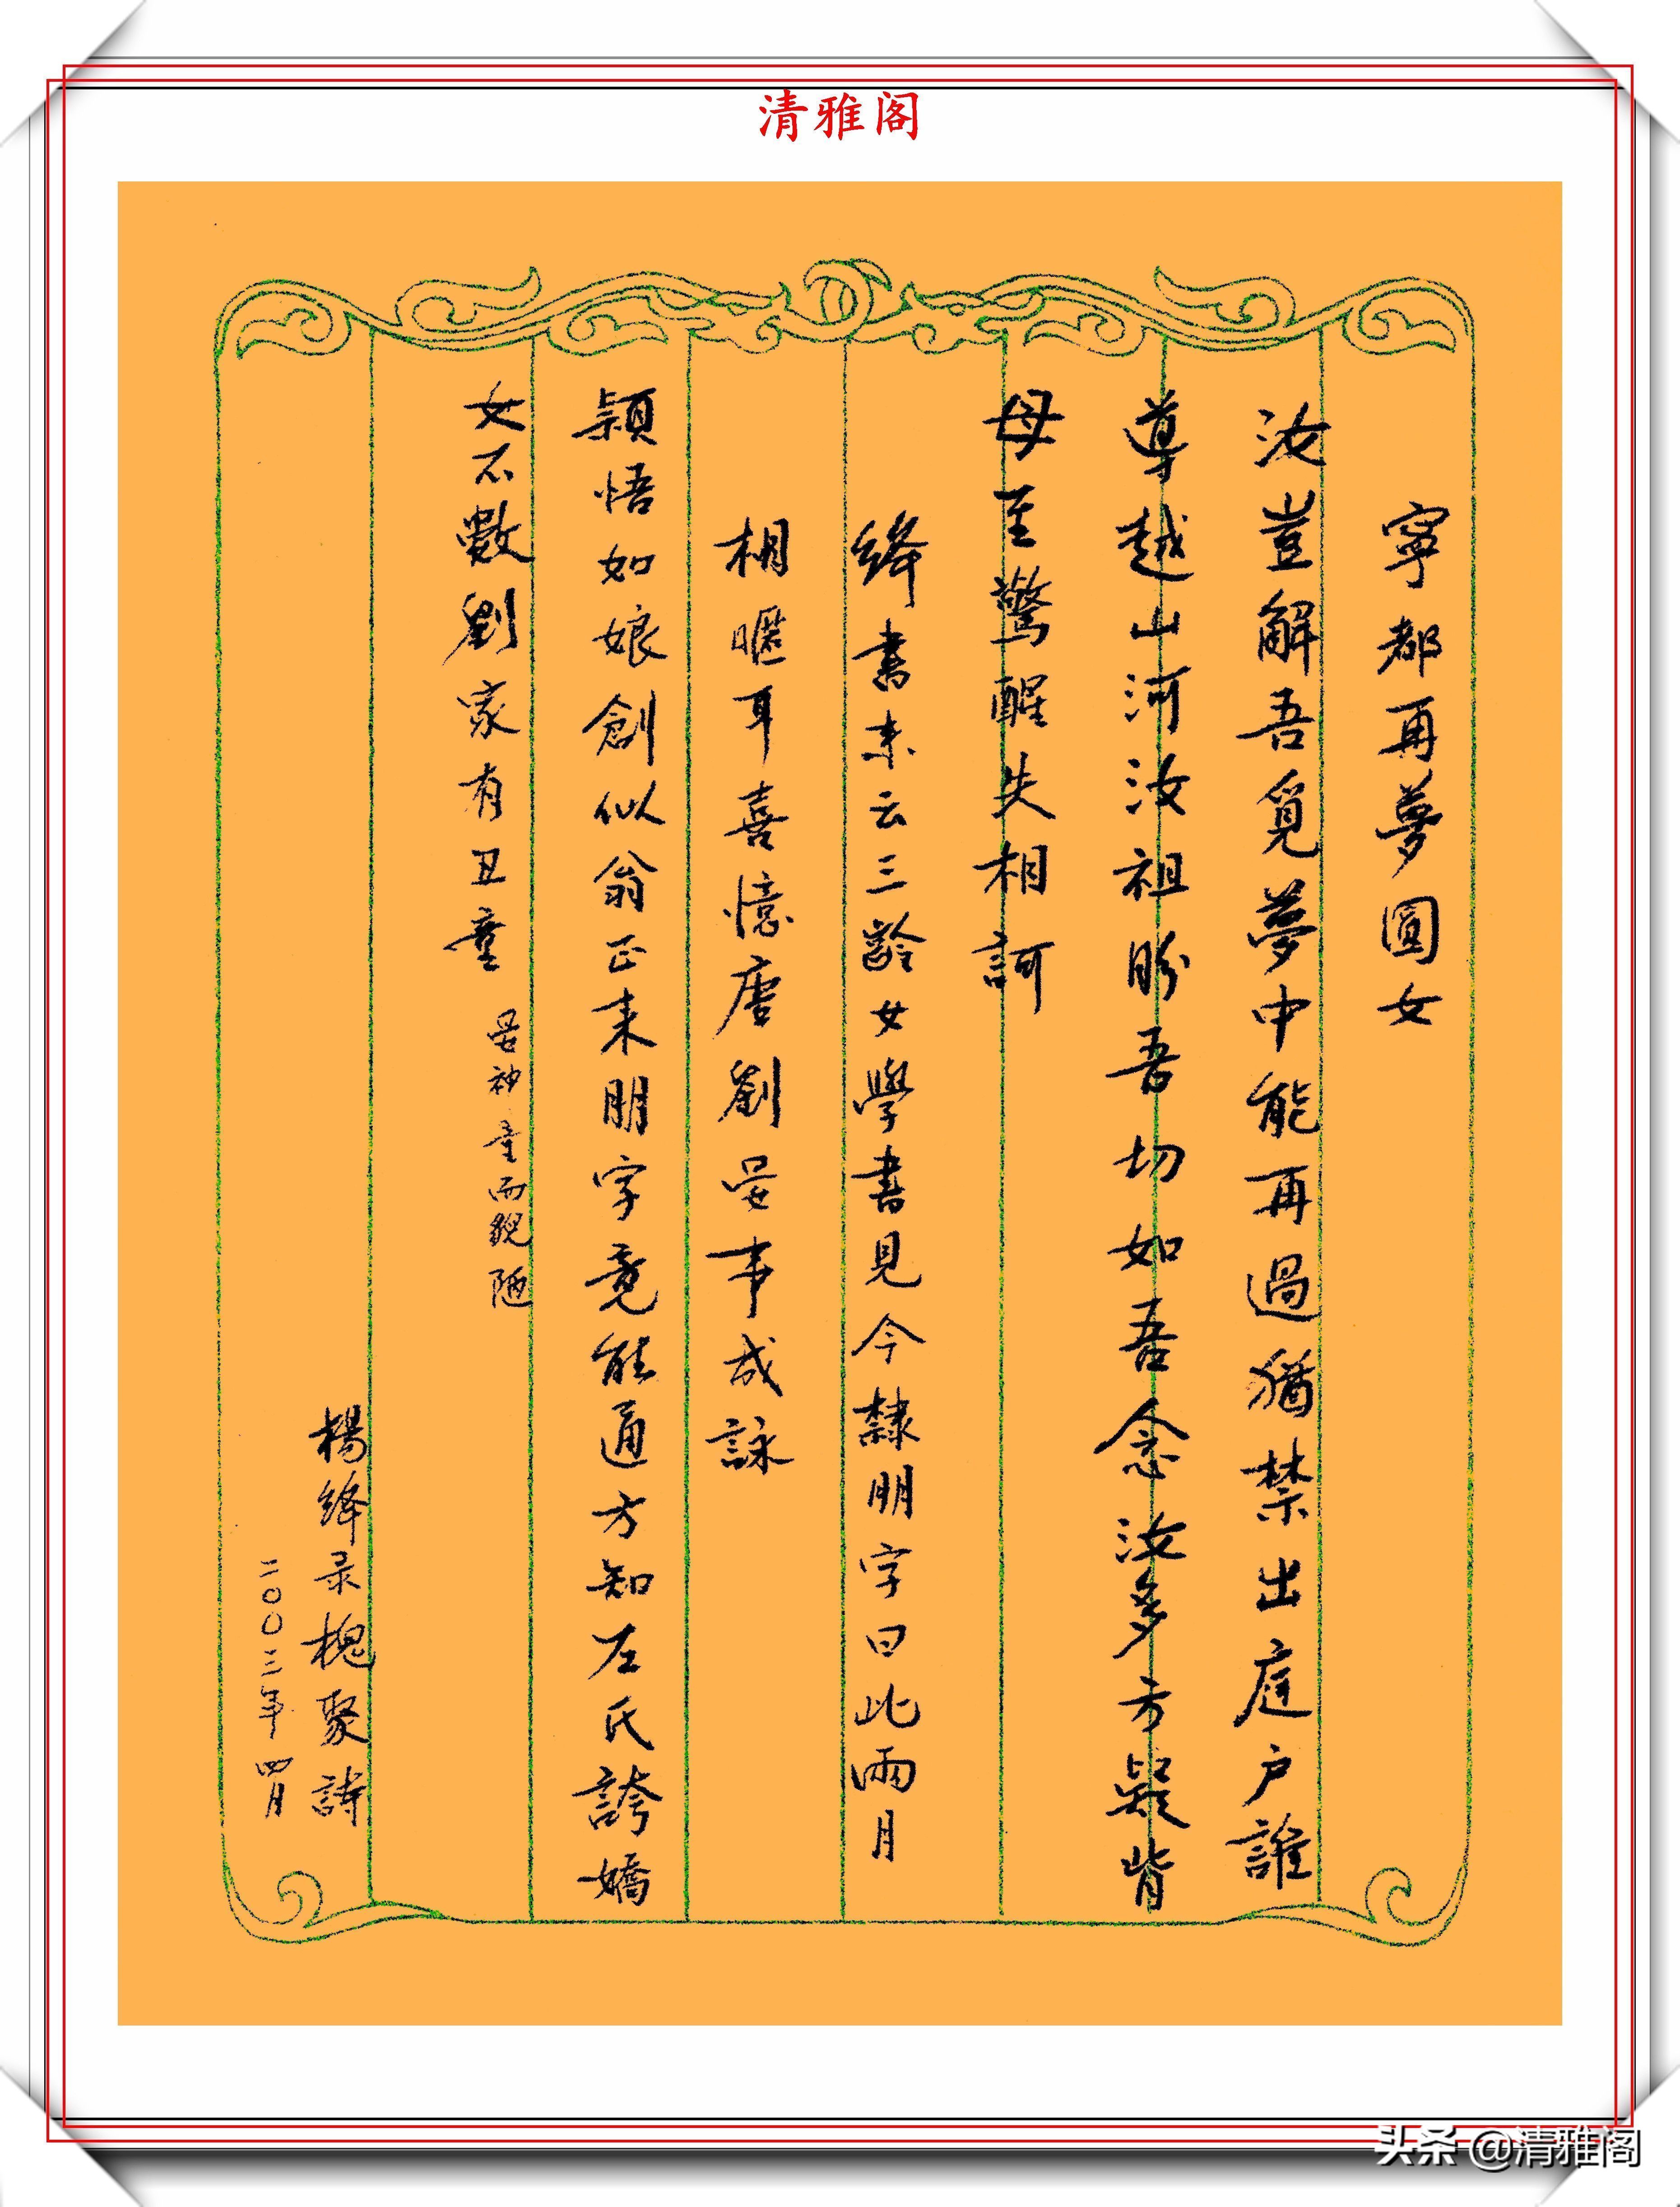 清雅阁
寧都再夢圓女
汝豈解吾覓夢中能再過猶禁出庭户誰
導越山河汝祖盼吾切如吾念汝多方疑背
母至驚醒失相訶
絳書来云三齡女學書見今隸朋字曰此兩月
相暱耳喜憶唐劉晏事成詠
穎悟如娘創似翁正来朋字竟能通方知左氏誇嬌
女不數劉家有丑童 晏神童而貌陋
楊絳录槐聚詩
二〇〇三年四月
头条 @清雅阁